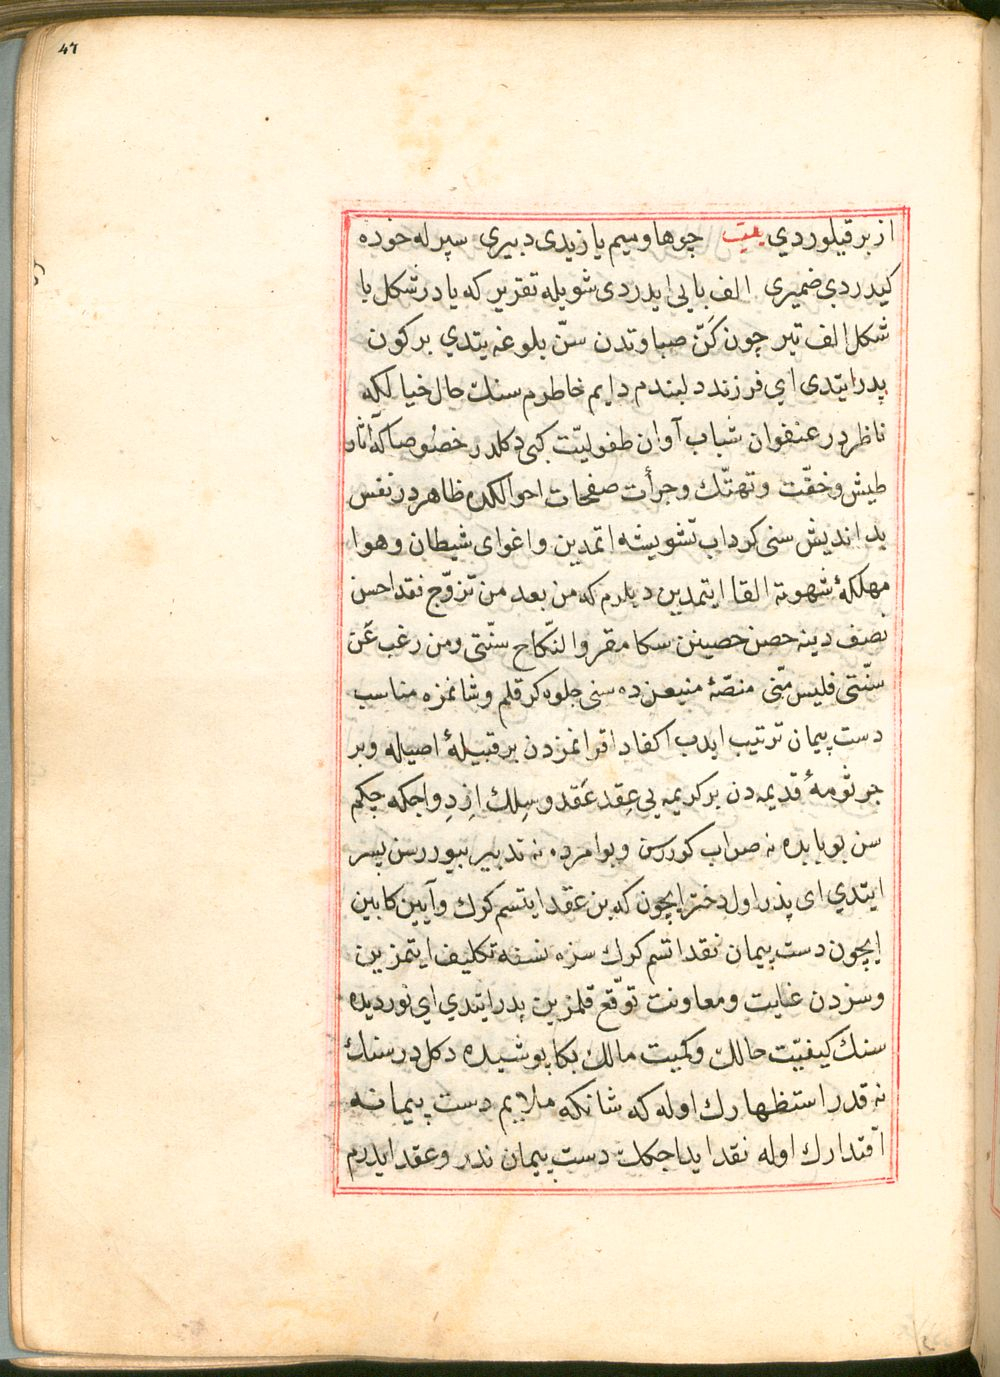 47
از بر قیلوردي بیت چوها و میم یازیدی دبیری سپرله خوده
کیدردی ضمیری الف بایی ایدردی شویله تقریر که یادر شکل یا
شکل الف تیر چون کنّ صباوتدن سنّ بلوغه یتدي برکون
پدر ایتدی ای فرزند دلبندم دایم خاطرم سنك حال خیالکه
ناظردر عنفوان شباب آوان طفولیّت کبی دکلدر خصوصا که آثار
طیش وخفّت وتهتّك وجرأت صفحات احوالکده ظاهردر نفس
بد اندیش سنی کرداب تشویشه اتمدین واغوای شیطان وهوا
مهلکهٔ شهوته القا ایتمدین دیلرم که من بعد من تزوّج فقد احسن
نصف دینه حصن حصینن سکا مقر والنّکاح سنّتی ومن رغب عن
سنّتی فلیس منّی منصّهٔ منیعنده سنی جلوه کر قلم وشانمزه مناسب
دست پیمان ترتیب ایدب اکفا واقرانمزدن بر قبیلهٔ اصیله وبر
جرثومهٔ قدیمه دن بر کریمه یی عقد عقد وسلك ازدواجکه چکم
سن بو بابده نه صواب کوررسن وبو امرده نه تدبیر بیوررسن پسر
ایتدي ای پذر اول دختر ایچون که بن عقد ایتسم کرك وآیین کابین
ایچون دست پیمان نقد اتسم کرك سزه نسنه تکلیف ایتمزین
وسزدن عنایت ومعاونت توقّع قلمزین پدر ایتدي ای نوردیده
سنك کیفیّت حالك وکمیت مالك بکا پوشیده دکلدر سنك
نه قدر استظهارك اوله که شانکه ملایم دست پیمانه
اقتدارك اوله نقد ایداجکك دست پیمان ندر وعقد ایدرم